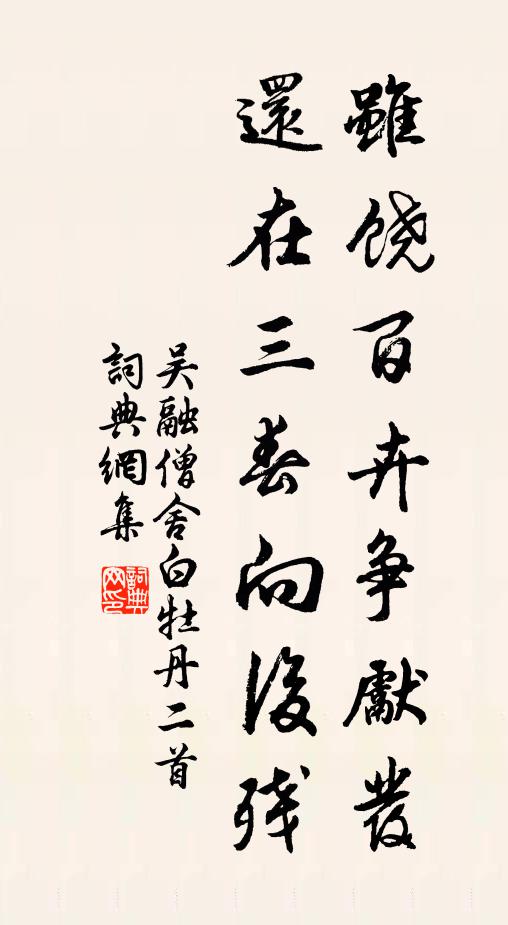 雖饶百卉争獻發
還在三春向後残
吴融僧舍白牡丹二首
詞典網集
詞典网印